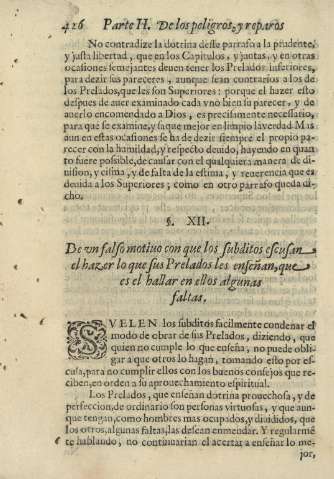 426 Parte II. De los peligros, y reparos
No contradize la dotrina deste parrafo a la prudente,
y justa libertad, que en los Capitulos, y juntas, y en otras
ocasiones semejantes deuen tener los Prelados inferiores,
para dezir sus pareceres, aunque sean contrarios a los de
los Prelados, que les son Superiores: porque el hazer esto
despues de auer examinado cada vno bien su parecer, y de
auerlo encomendado a Dios, es precisamente necesario,
para que se examine, y saque mejor en limpio la verdad. Mas
aun en estas ocasiones se ha de dezir siempre el propio pa-
recer con la humildad, y respecto deuido, huyendo en quan
to fuere possible, de causar con el qualquiera manera de di-
uision, y cisma, y de falta de la estima, y reuerencia que es
deuida a los Superiores; como en otro parrafo queda di-
cho.
§. XII.
De vn falso motiuo con que los subditos escusan
el hazer lo que sus Prelados les enseñan, que
es el hallar en ellos algunas
faltas.
SVELEN los subditos facilmente condenar el
modo de obrar de sus Prelados, diziendo, que
quien no cumple lo que enseña, no puede obli-
gar a que otros lo hagan, tomando esto por es-
cusa, para no cumplir ellos con los buenos consejos que re-
ciben, en orden a su aprouechamiento espiritual.
Los Prelados, que enseñan dotrina prouechosa, y de
perfeccion, de ordinario son personas virtuosas, y que aun-
que tengan, como hombres mas ocupados, y diuididos, que
los otros, algunas faltas, las desean enmendar. Y regularmẽ
te hablando, no continuarian el acertar a enseñar lo me-
jor,